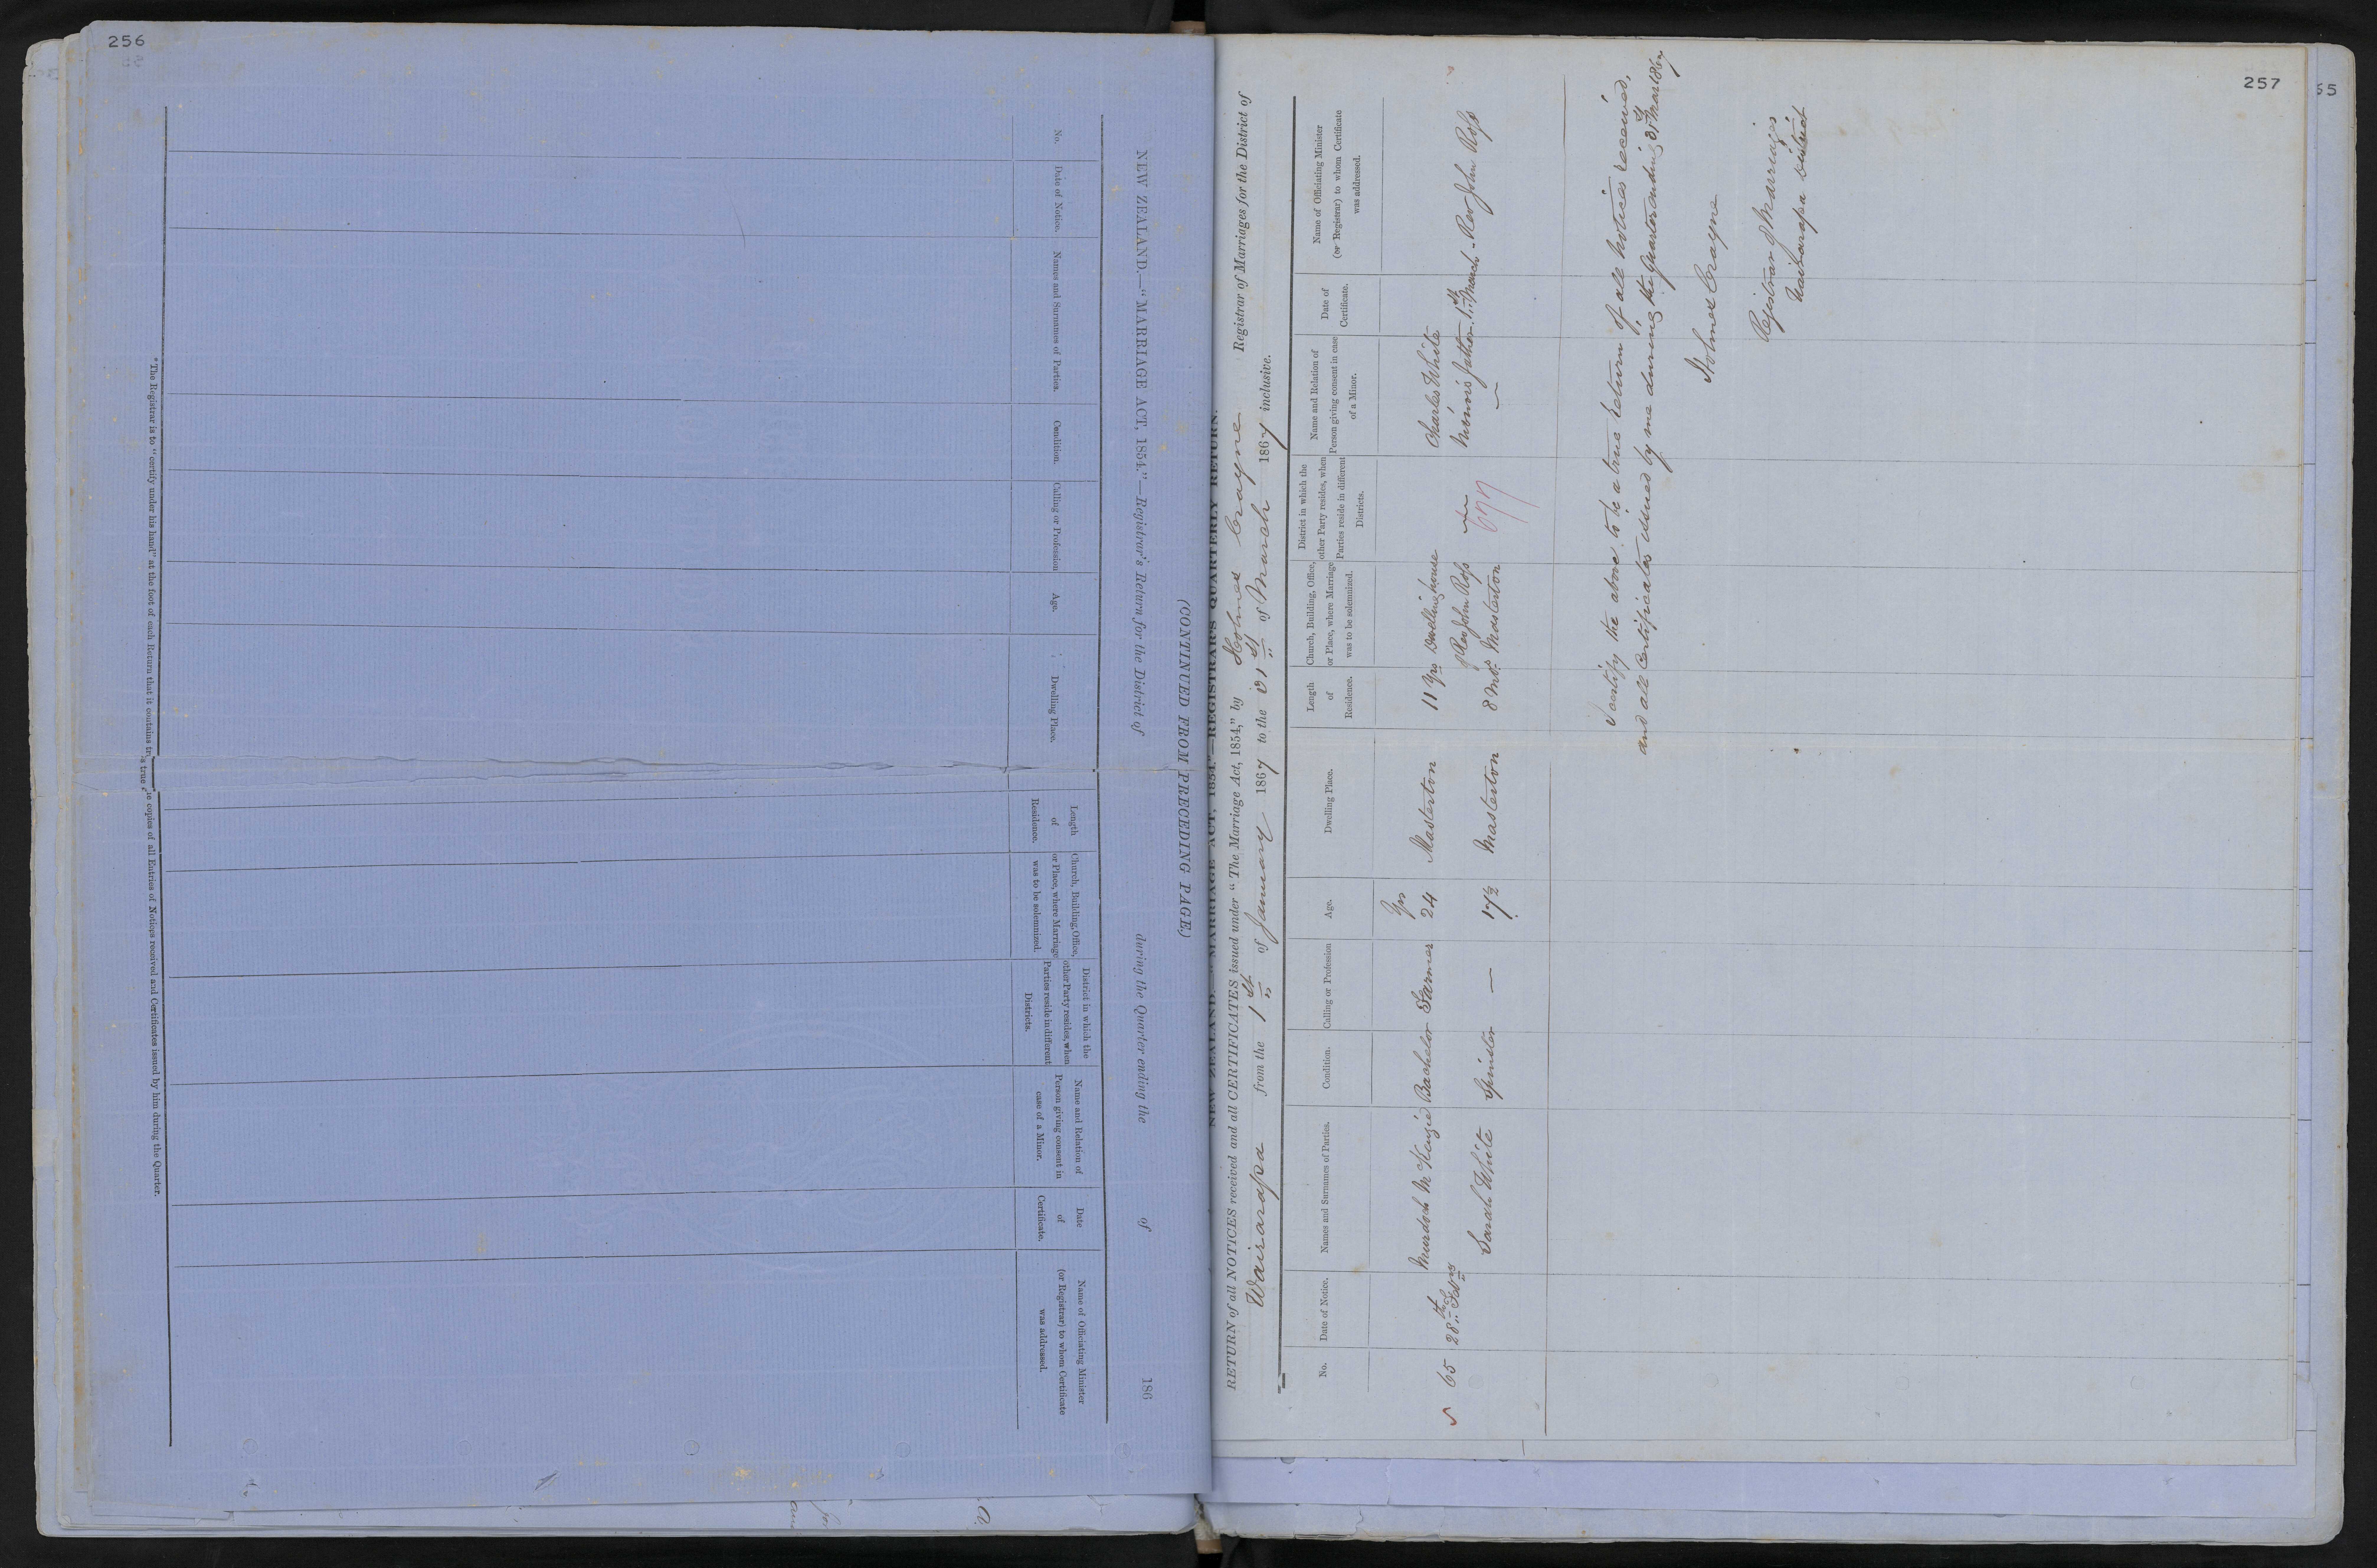 256
NEW ZEALAND.—"MARRIAGE ACT, 1854."—Registrar's Return for the District of during the Quarter ending the of 186
(CONTINUED FROM PRECEDING PAGE.)
No.
Date of Notice.
Names and Surnames of Parties.
Condition.
Calling or Profession
Age.
Dwelling Place.
Length
of
Residence.
Church, Building, Office,
or Place, where Marriage
was to be solemnized.
District in which the
other Party resides, when
Parties reside in different
Districts.
Name and Relation of
Person giving consent in
case of a Minor.
Date
of
Certificate.
Name of Officiating Minister
(or Registrar) to whom Certificate
was addressed.
*The Registrar is to "certify under his hand" at the foot of each Return that it contains true copies of all Entries of Notices received and Certificates issued by him during the Quarter.
257
55
NEW ZEALAND.—"MARRIAGE ACT, 1854."—REGISTRAR'S QUARTERLY RETURN.
RETURN of all NOTICES received and all CERTIFICATES issued under "The Marriage Act, 1854," by Holmes Crayne Registrar of Marriages for the District of
Wairarapa from the 1st of January 1867 to the 31st of March 1867 inclusive.
No.
Date of Notice.
Names and Surnames of Parties.
Condition.
Calling or Profession
Age.
Dwelling Place.
Length
of
Residence.
Church, Building, Office,
or Place, where Marriage
was to be solemnized.
District in which the
other Party resides, when
Parties reside in different
Districts.
Name and Relation of
Person giving consent in case
of a Minor.
Date of
Certificate.
Name of Officiating Minister
(or Registrar) to whom Certificate
was addressed.
Yrs
Murdoch McKenzie Bachelor Farmer 24 Masterton 11 Yrs Dwelling house Charles White
65 28th Feb of Rev John Ross Minors father 1st March Rev John Ross
Sarah White Spinster — 17½ Masterton 8 Mos. Masterton
I certify the above to be a true Return of all Notices received,
and all Certificates issued by me during the Quarter ending 31st Mar 1867
Holmes Crayne
Registrar of Marriages
Wairarapa District